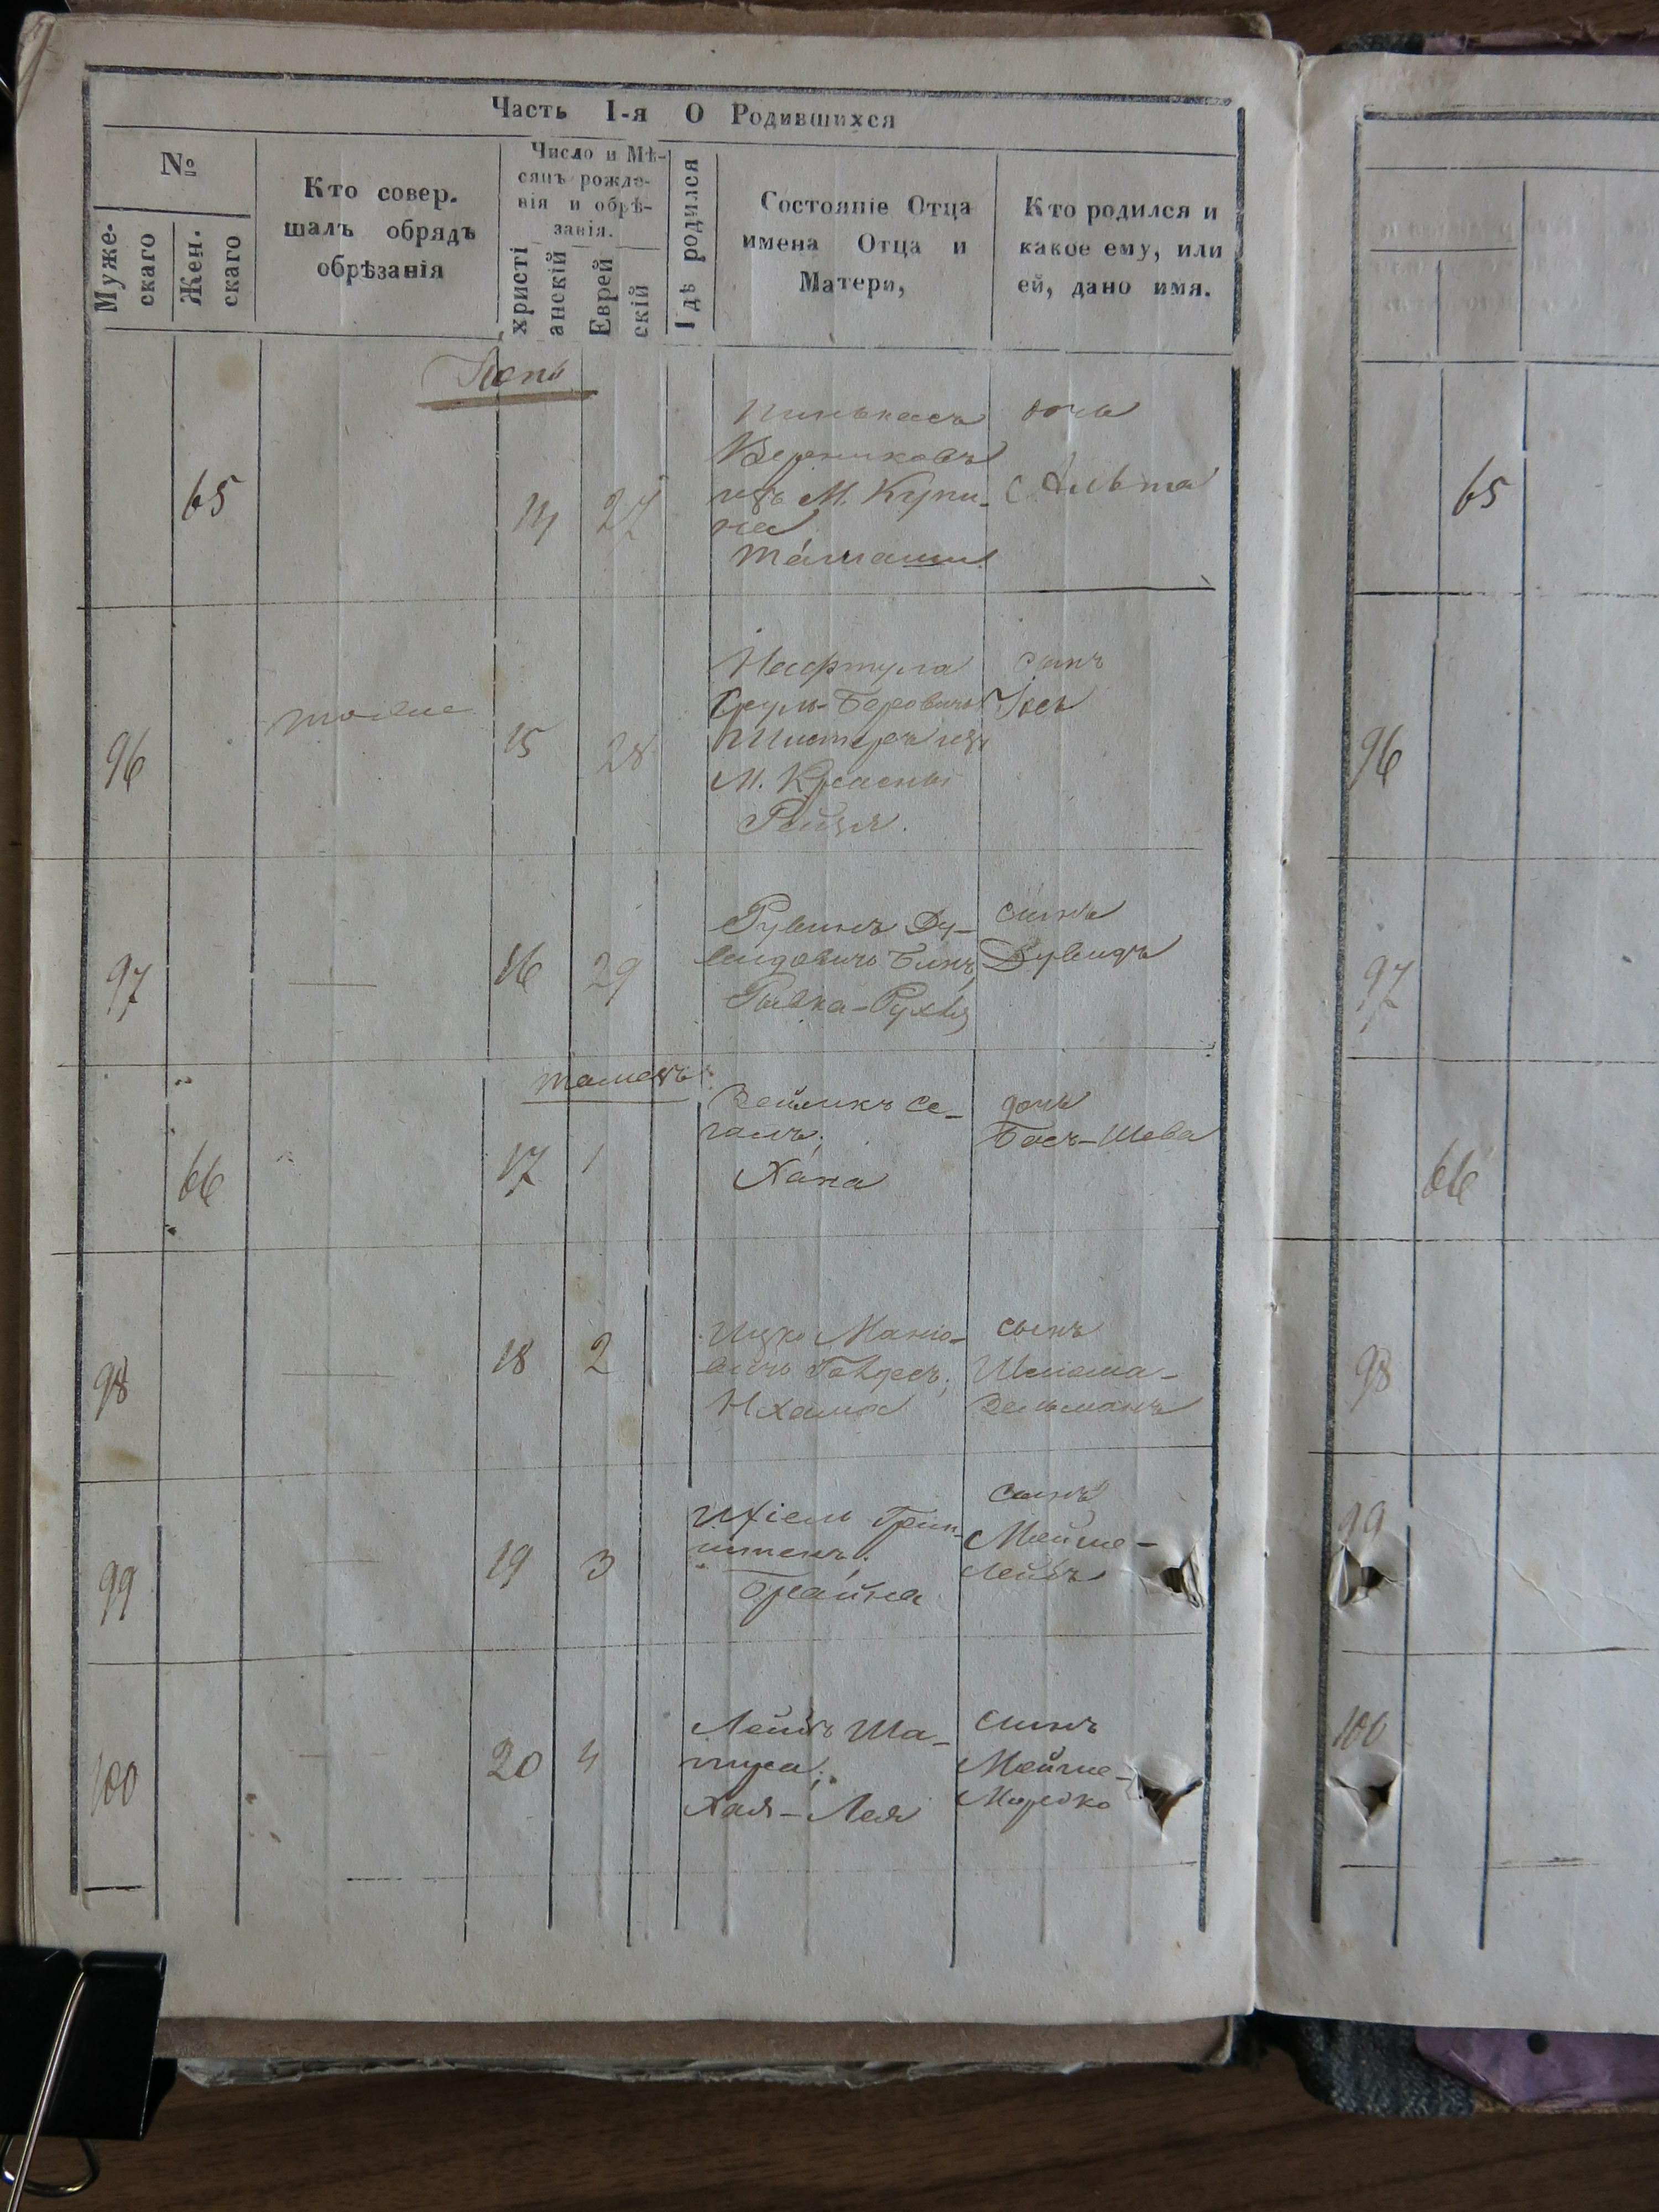 Часть I-я О Родившихся
№
Муже-
скаго
Жен.
скаго
Кто совер.
шалъ обрядъ
обрѣзанія
Число и Мѣ-
сяцъ рожде-
нія и обрѣ-
занія.
христі
анскій
Еврей
скій
Гдѣ родился
Состояніе Отца
имена Отца и
Матери,
Кто родился и
какое ему, или
ей, дано имя.
65
14
27
Пинькасъ
изъ М. Купи-
на
дочь
65
96
тоже
15
28
Нафтула
Сруль-Беровичъ
изъ
М. Красны
Рейзя.
сынъ
Іось
96
97
16
29
Рувинъ Ду-
видовичъ Бикъ,
Рывка-Рухля
сынъ
Дувидъ
97
тамезъ
66
17
1
Зейликъ Се-
галъ;
Хана
дочь
Бась-Шева
66
98
18
2
Ицко Маніо-
вичъ
Нхама
сынъ
Шлиома-
Зельманъ
98
99
19
3
Ихіель Грин-
штенъ;
Брайна
сынъ
Мейше-
Лейбъ
99
100
20
4
Лейбъ Ша-
пира;
Хая-Лея
сынъ
Мейше-
Мордко
100